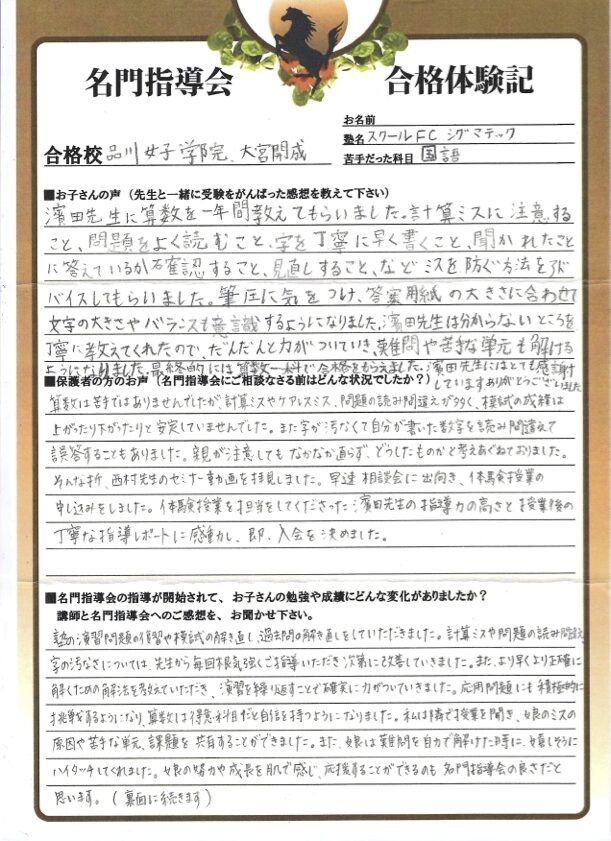 名門指導会 合格体験記
お名前
塾名 スクールFC シグマテック
合格校 品川女子学院、大宮開成
苦手だった科目 国語
■お子さんの声（先生と一緒に受験をがんばった感想を教えて下さい）
濱田先生に算数を一年間教えてもらいました。計算ミスに注意する
こと、問題をよく読むこと、字を丁寧に早く書くこと、聞かれたこと
に答えているか確認すること、見直しすること、などミスを防ぐ方法をアド
バイスしてもらいました。筆圧に気をつけ、答案用紙の大きさに合わせて
文字の大きさやバランスも意識するようになりました。濱田先生は分からないところを
丁寧に教えてくれたので、だんだんと力がついていき、難問や苦手な単元も解ける
ようになりました。最終的には算数一科で合格をもらえました。濱田先生にはとても感謝
しています ありがとうございました
■保護者の方のお声（名門指導会にご相談なさる前はどんな状況でしたか？）
算数は苦手ではありませんでしたが、計算ミスやケアレスミス、問題の読み間違えが多く、模試の成績は
上がったり下がったりと安定していませんでした。また字が汚なくて自分が書いた数字を読み間違えて
誤答することもありました。親が注意してもなかなか直らず、どうしたものかと考えあぐねておりました。
そんな折、西村先生のセミナー動画を拝見しました。早速相談会に出向き、体験授業の
申し込みをしました。体験授業を担当をしてくださった濱田先生の指導力の高さと授業後の
丁寧な指導レポートに感動し、即、入会を決めました。
■名門指導会の指導が開始されて、お子さんの勉強や成績にどんな変化がありましたか？
講師と名門指導会へのご感想を、お聞かせ下さい。
塾の演習問題の復習や模試の解き直し、過去問の解き直しをしていただきました。計算ミスや問題の読み間違え、
字の汚なさについては、先生から毎回根気強くご指導いただき次第に改善していきました。また、より早くより正確に
解くための解法を教えていただき、演習を繰り返すことで確実に力がついていきました。応用問題にも積極的に
挑戦をするようになり、算数は得意科目だと自信を持つようになりました。私は隣で授業を聞き、娘のミスの
原因や苦手な単元、課題を共有することができました。また、娘は難問を自力で解けた時に、嬉しそうに
ハイタッチしてくれました。娘の努力や成長を肌で感じ、応援することができるのも名門指導会の良さだと
思います。（裏面に続きます）